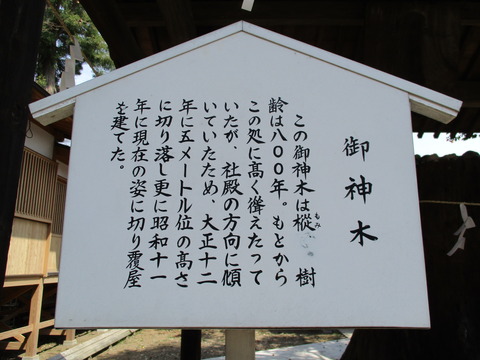 御神木
この御神木は樅もみ 樹
齢は八００年。もとから
この処に高く聳えたって
いたが、社殿の方向に傾
いていたため、大正十二
年に五メートル位の高さ
に切り落し更に昭和十一
年に現在の姿に切り覆屋
を建てた。